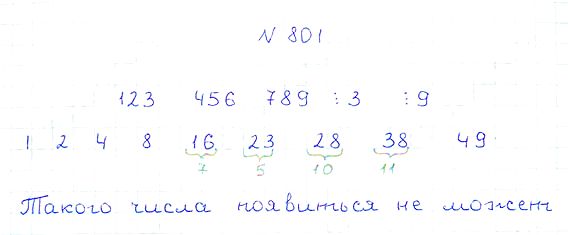 N 801
123 456 789 ⋮3 ⋮9
1 2 4 8 16 23 28 38 49
7 5 10 11
Такого числа появиться не может